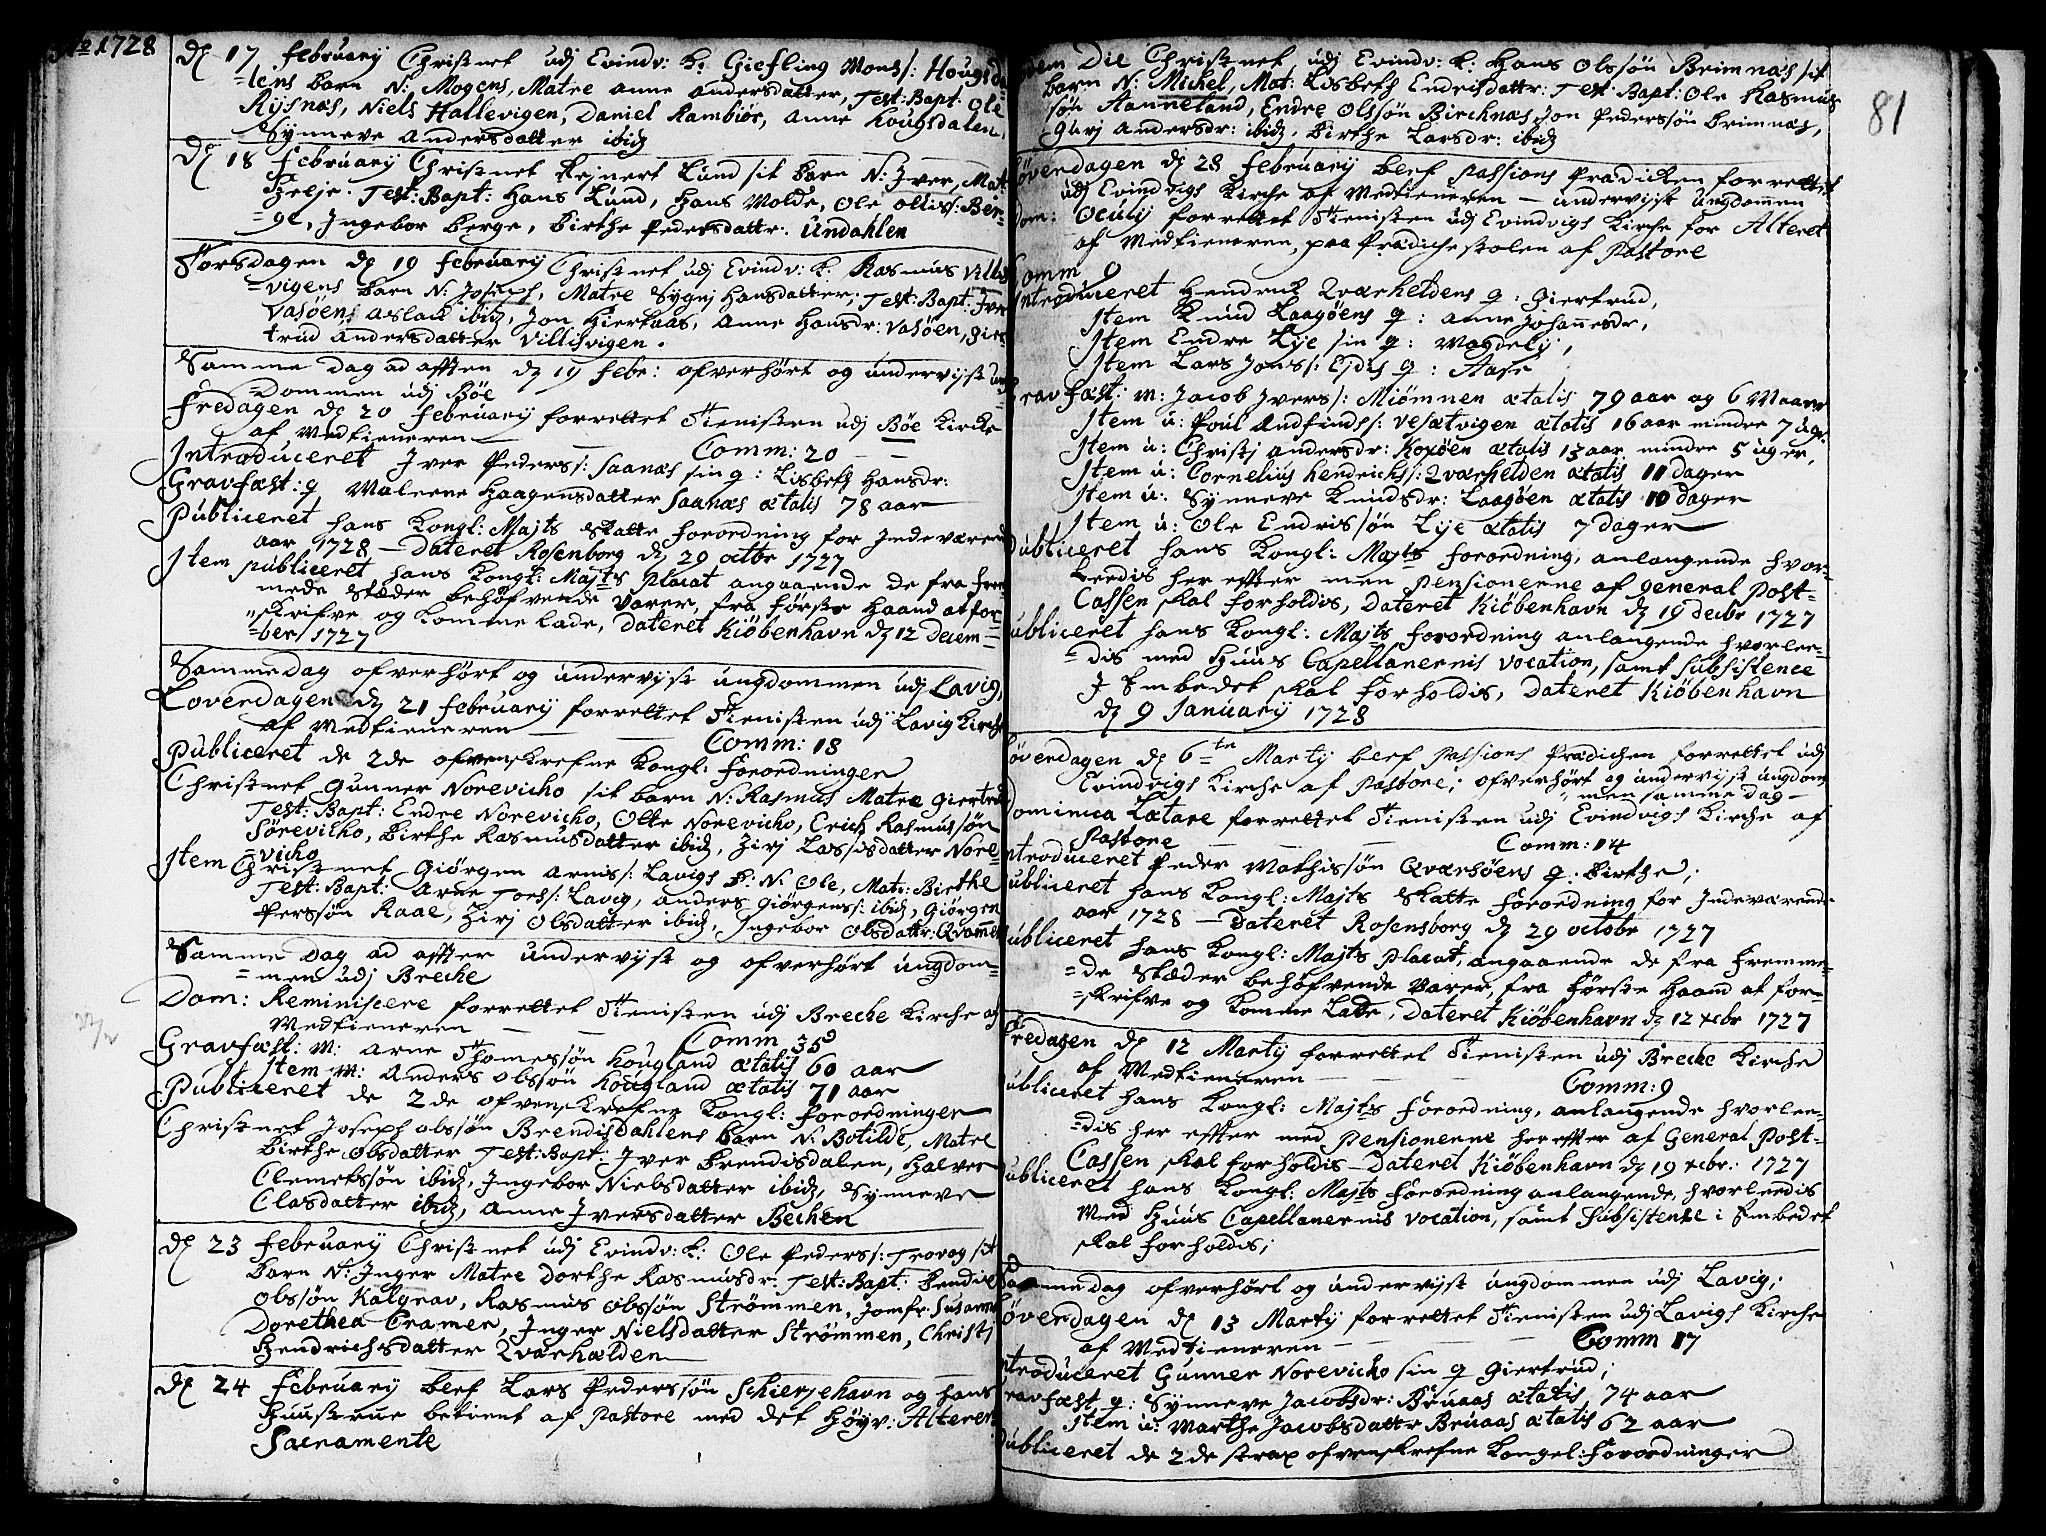 1728
dͤ 17 februarij Christnet udj Evindv: K: Giefling Mons/: Hougsda
=lens barn N: Mogens, Matre anne andersdatter, Test: Bapt: Ole
Rysnæs, Niels Hallevigen, Daniel Rambiör, Anne hougsdalen,
Synneve Andersdatter ibid
dͤ 18 februarij Christnet Rejnert Lund sit barn N: Iver, Mat:
Helje. Test: Bapt: Hans Lund, Hans Molde, Ole ollis/: Ber-
=ge, Ingebor Berge, Birthe Pedersdattr. Undahlen
Torsdagen dͤ 19 februarij Christnet udj Evindv: K: Rasmus Villis
=vigens barn N: Joseph, Matre Sygnj Hansdatter, Test: Bapt: Iver
Vasöens, aslack ibid, Jon Hierkaas, Anne Hansdr: Vasöen, gier
trud andersdatter Villisvigen.
Samme dag ad afften dͤ 19 febr: ofverhört og undervijst ung
=Dommen udj Böe
fredagen dͤ 20 februarij forrettet Tienisten udj Böe Kircke
af Medtieneren Comm: 20
Introduceret Iver Peders/: Saanæs sin q: Lisbeth Hansdr:
Gravfæst: q Maleene Haagensdatter Saanæs ætatis 78 aar
Publiceret hans Kongl: Majts Skatte forordning for Indeværend
aar 1728 – Dateret Rosenborg dͤ 29 octbr 1727
Item publiceret hans Kongl: Majts placat angaaende de fra frem
mede stæder behöfvende Varer, fra förste Haand at for-
=skrifve og komme lade, Dateret Kiöbenhavn dͤ 12 decem=
=ber 1727
Samme dag ofverhört og undervijst ungdommen udj Lavig,
Loverdagen dͤ 21 februarij forrettet Tienisten udj Lavig Kirche
af Medtieneren Comm: 18
Publiceret de 2de ofvenskrefne Kongl: forordninger
Christnet Gunner Norevicho sit barn N: Rasmus Matre giertrud
Test: Bapt: Endre Norevicho, Otte Norevicho, Erich Rasmussön
Sörevicho, Birthe Rasmusdatter ibid, Zirj Lassisdatter Nore=
=vicho
Item Christnet Giörgen Arnis/: Lavigs b: N: Ole, Matr: Birthe
Test: Bapt: Arne Tors/: Lavig, anders Giörgens/: ibid, Giörgen
Persön Raae, Zirj Olsdatter ibid, Ingebor Olsdattr: Qvamme
Samme dag ad afften undervijst og ofverhört ungdom=
=men udj Breche
Dom: Reminiscere forrettet Tienisten udj Breche Kirche af
Medtieneren Comm 35
Gravfæst: M: Arne Thomessön hougland ætatis 60 aar
Item M: Anders Olssön hougland ætatis 71 aar
Publiceret de 2de ofvenskrefne Kongl: forordninger
Christnet Joseph olssön Brendisdahlens barn N: Botilde, Matre
Birthe Olsdatter Test: Bapt: Iver Brendisdalen, Halver
Clemetsön ibid, Ingebor Nielsdatter ibid, Synneve
Clasdatter ibid, Anne Iversdatter Bechen
dͤ 23 februarij Christnet udj Evindv: K: Ole Peders/: Trovog sit
barn N: Inger Matre Dorthe Rasmusdr: Test: Bapt: Bendic
Olssön Kalgrav, Rasmus Olssön Strömmen, Jomfr: Susanne
Dorethea Cramer, Inger Nielsdatter Strömmen, Christj
Hendrichsdatter Qvarhælden
dͤ 24 februarij blef Lars Pederssön Schierjehavn og Hans
Huustrue betient af Pastore med det Höyv: Alteren
Sacramente
81
Die Christnet udj Evindv: K: Hans Olssön Brimnæs sit
barn N: Michel, Mat: Lisbeth Endrisdattr: Test: Bapt: Ole Rasmus
sön Hanneland, Endre Olssön Birchnæs, Jon Pederssön Brimnæs,
Gurj Andersdr: ibid, Birthe Larsdr: ibid
Löverdagen dͤ 28 februarij blef passions Prædicken forrettet
udj Evindvigs Kirche af Medtieneren – undervijst ungdommen
Dom: Oculj forrettet Tienisten udj Evindvigs Kirche for Alteret
af Medtieneren, paa Prædichestolen af Pastore
Comm 9
Introduceret Hendrick Qvarheldens q: giertrud,
Item Knud Laagöens q: anne Johannesdr,
Item Endre Lye sin q: Magdelj,
Item Lars Jons/: Ejdes q: Aase
Gravfæst: M: Jacob Ivers/: Miömnen ætatis 79 aar og 6 Maaner
Item u: Poul Andfinds/: Vesætvigen ætatis 16 aar mindre 7 uger
Item u: Christj andersdr: Koxöen ætatis 13 aar mindre 5 uger,
Item u: Cornelius Hendrichs/: Qvarhelden ætatis 11 dager
Item u: Synneve Knudsdr: Laagöen ætatis 10 dager
Item u: Ole Endrissön Lye ætatis 7 dager
Publiceret hans Kongl: Majts forordning, anlangende hvor-
leedis her effter men pensionerne af general Post=
Cassen skal forholdis, Dateret Kiöbenhavn dͤ 19 decbr 1727
Publiceret hans Kongl: Majts forordning anlangende hvorlee=
=dis med Huus Capellanernis vocation, samt subsistence
I Embedet skal forholdis, Dateret Kiöbenhavn
dͤ 9 January 1728
Löverdagen dͤ 6te Martij blef passions Prædichen forrettet udj
Evindvigs Kirche af Pastore; ofverhört og undervijst ungdom
=men samme dag
Dominica Lætare forrettet Tienisten udj Evindvigs Kirche af
Pastore Comm: 14
Introduceret Peder Mathissön Qværsöens q: Birthe;
Publiceret hans Kongl: Majts Skatte forordning for Indeværende
aar 1728 – Dateret Rosensborg dͤ 29 octobr 1727
Publiceret hans Kongl: Majts placat, angaaende de fra fremme=
=de Stæder behöfvende Varer, fra förste Haand at for=
=skrifve og komme Lade, Dateret Kiöbenhavn dͤ 12 xcbr 1727
Fredagen dͤ 12 Martij forrettet Tienisten udj Breche Kirche
af Medtieneren Comm: 9
Publiceret hans Kongl: Majts forordning, anlangende hvorlee=
=dis her effter med pensionerne her effter af General Post=
Cassen skal forholdis – Dateret Kiöbenhavn dͤ 19 xcbr: 1727
Publiceret hans Kongl: Majts forordning anlangende, hvorleedis
Med Huus Capellanernis vocation, samt Subsistence i Embedet
skal forholdis;
Samme dag ofverhört og undervijst ungdommen udj Lavig;
Löverdagen dͤ 13 Martij forrettet Tienisten udj Lavigs Kirche
af Medtieneren Comm 17
Introduceret Gunner Norevicho sin q Giertrud;
Gravfæst q: Synneve Jacobsdr: Bruaas ætatis 74 aar
Item u: Marthe Jacobsdatter Bruaas ætatis 62 aar
Publiceret de 2de strax ofvenskrefne Kongel: forordninger